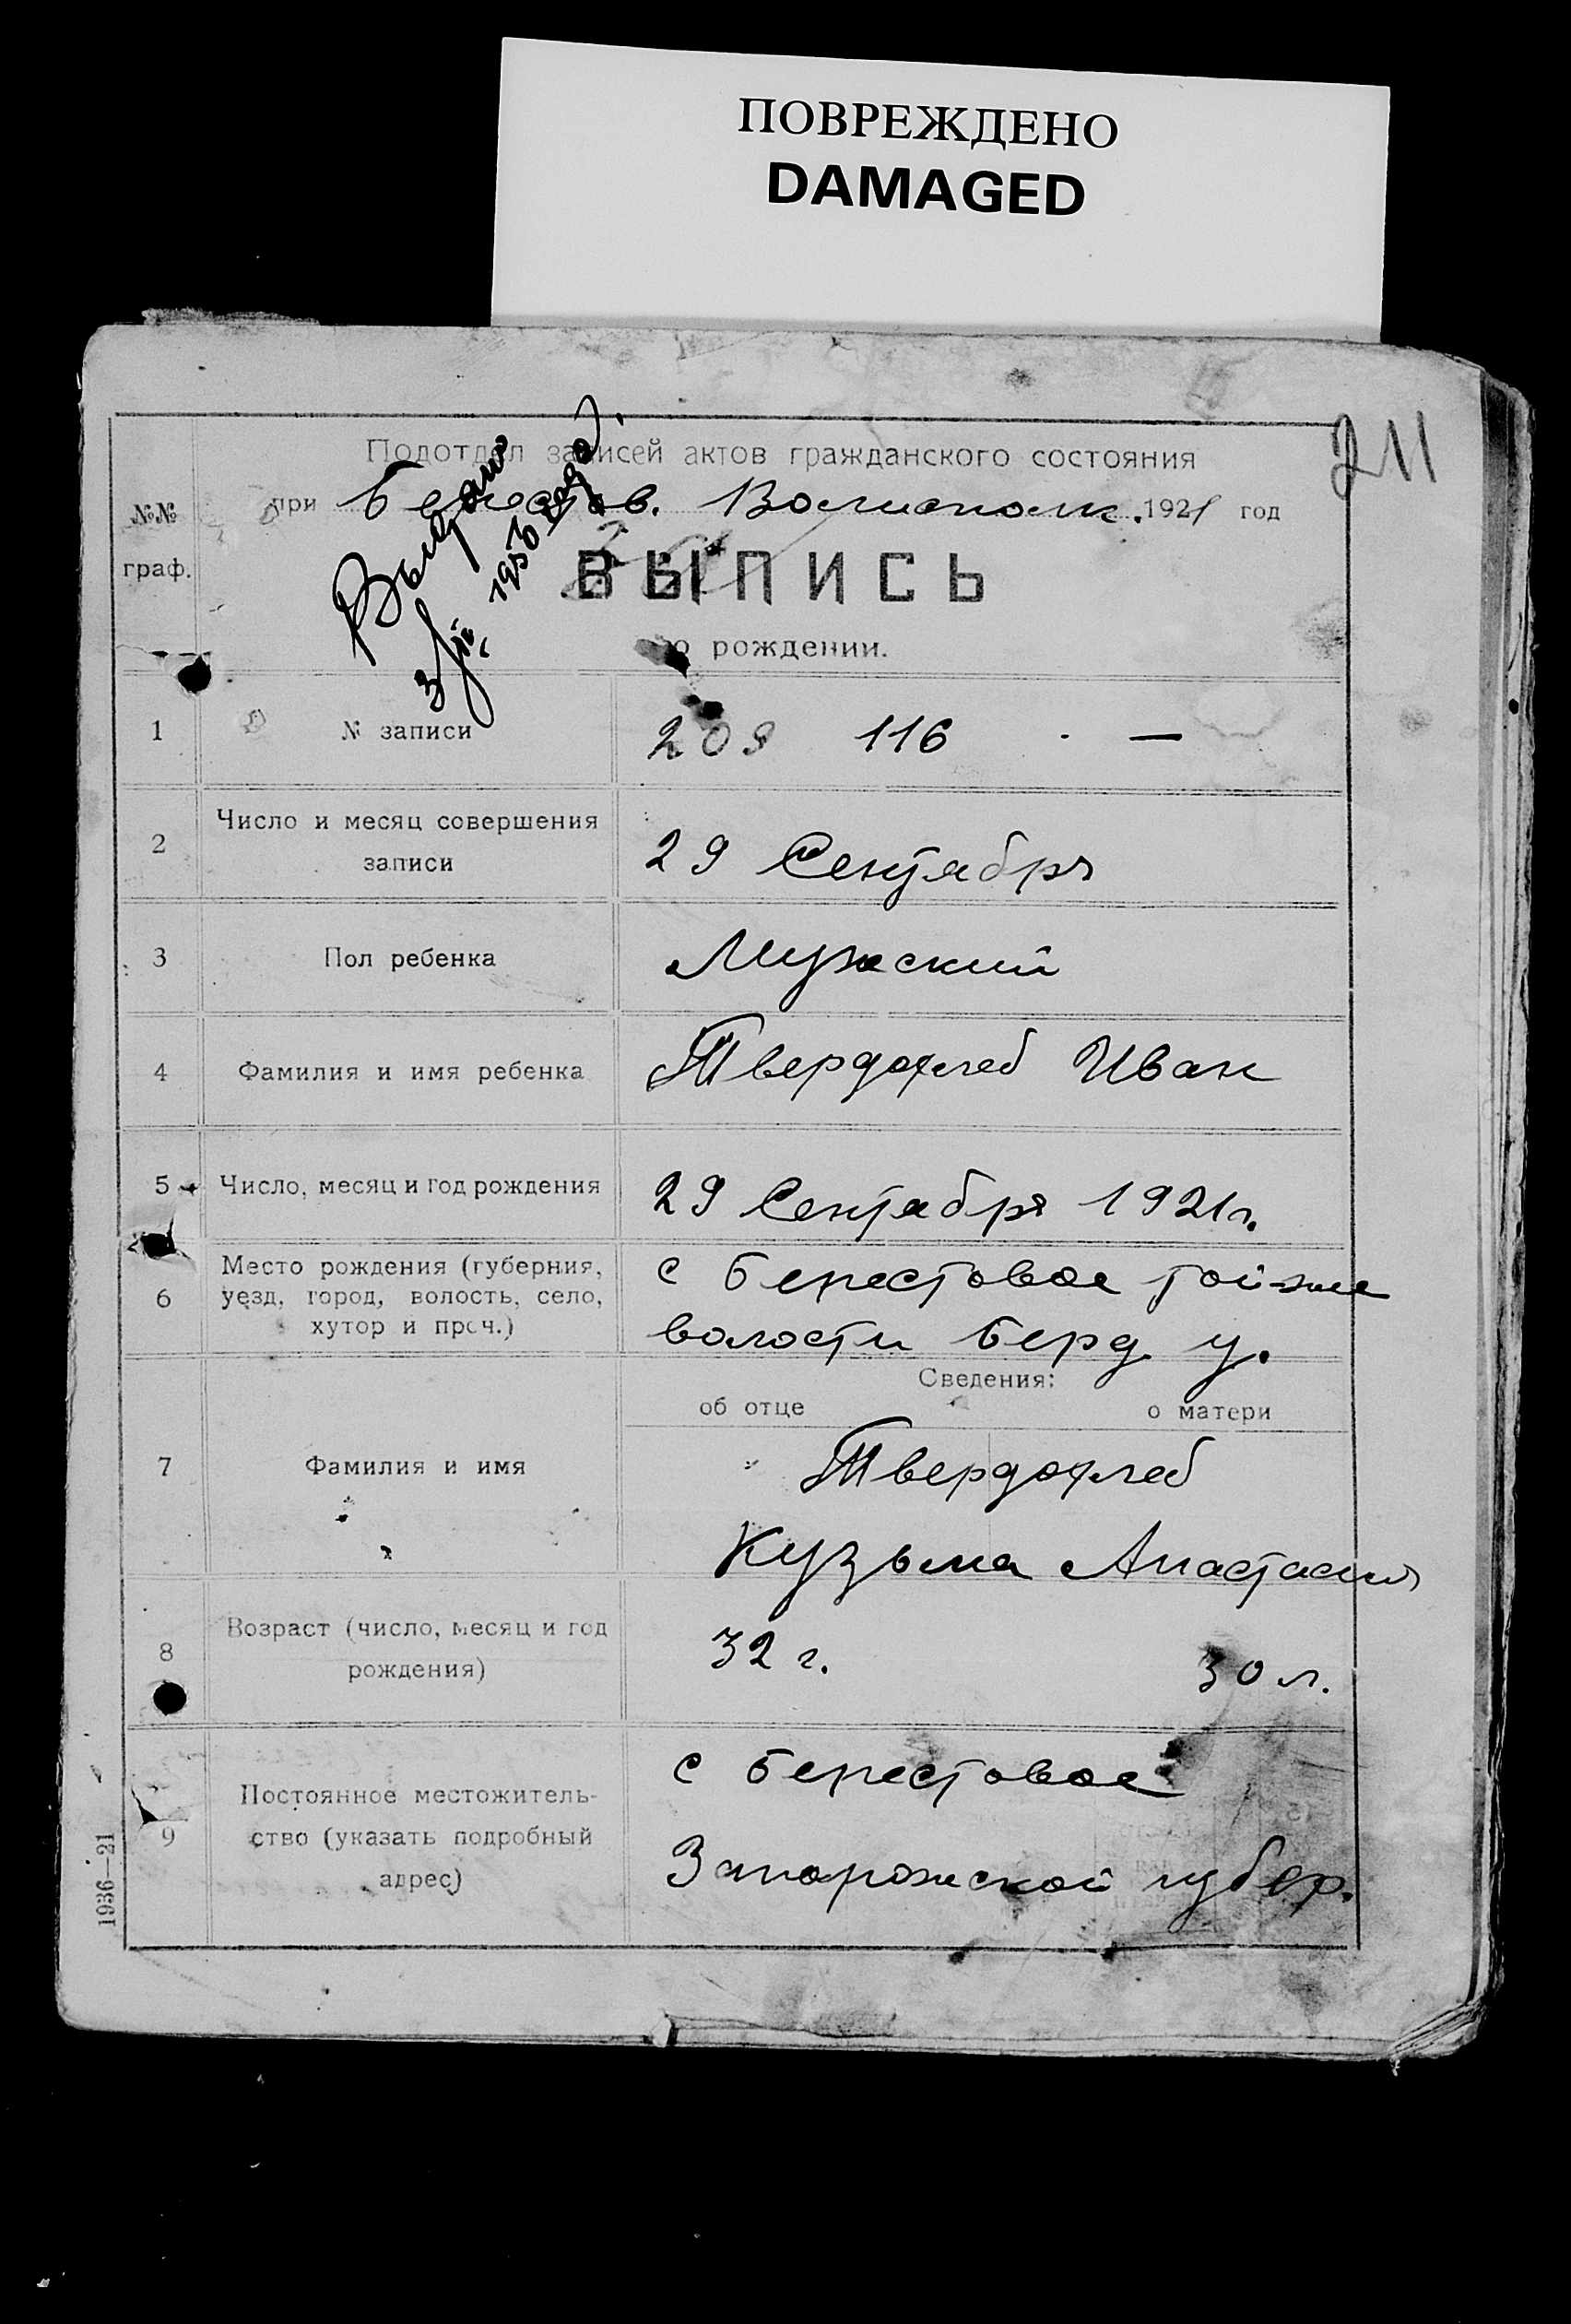 ПОВРЕЖДЕНО
DAMAGED
211
Подотдел записей актов гражданского состояния
при Берестов. Волисполк. 1921 год
№№
граф.
ВЫПИСЬ
о рождении.
Выдано
1956 года.
1 № записи 209 116 —
2 Число и месяц совершения
записи
29 Сентября
3 Пол ребенка Мужеский
4 Фамилия и имя ребенка Твердохлеб Иван
5 Число, месяц и год рождения 29 Сентября 1921 г.
6 Место рождения (губерния,
уезд, город, волость, село,
хутор и проч.)
с Берестовое той-же
волости Берд. у.
Сведения:
об отце о матери
7 Фамилия и имя Твердохлеб
Кузьма Анастасия
8 Возраст (число, месяц и год
рождения)
32 г. 30 л.
9 Постоянное местожитель-
ство (указать подробный
адрес)
с Берестовое
Запорожской губер.
1936—21